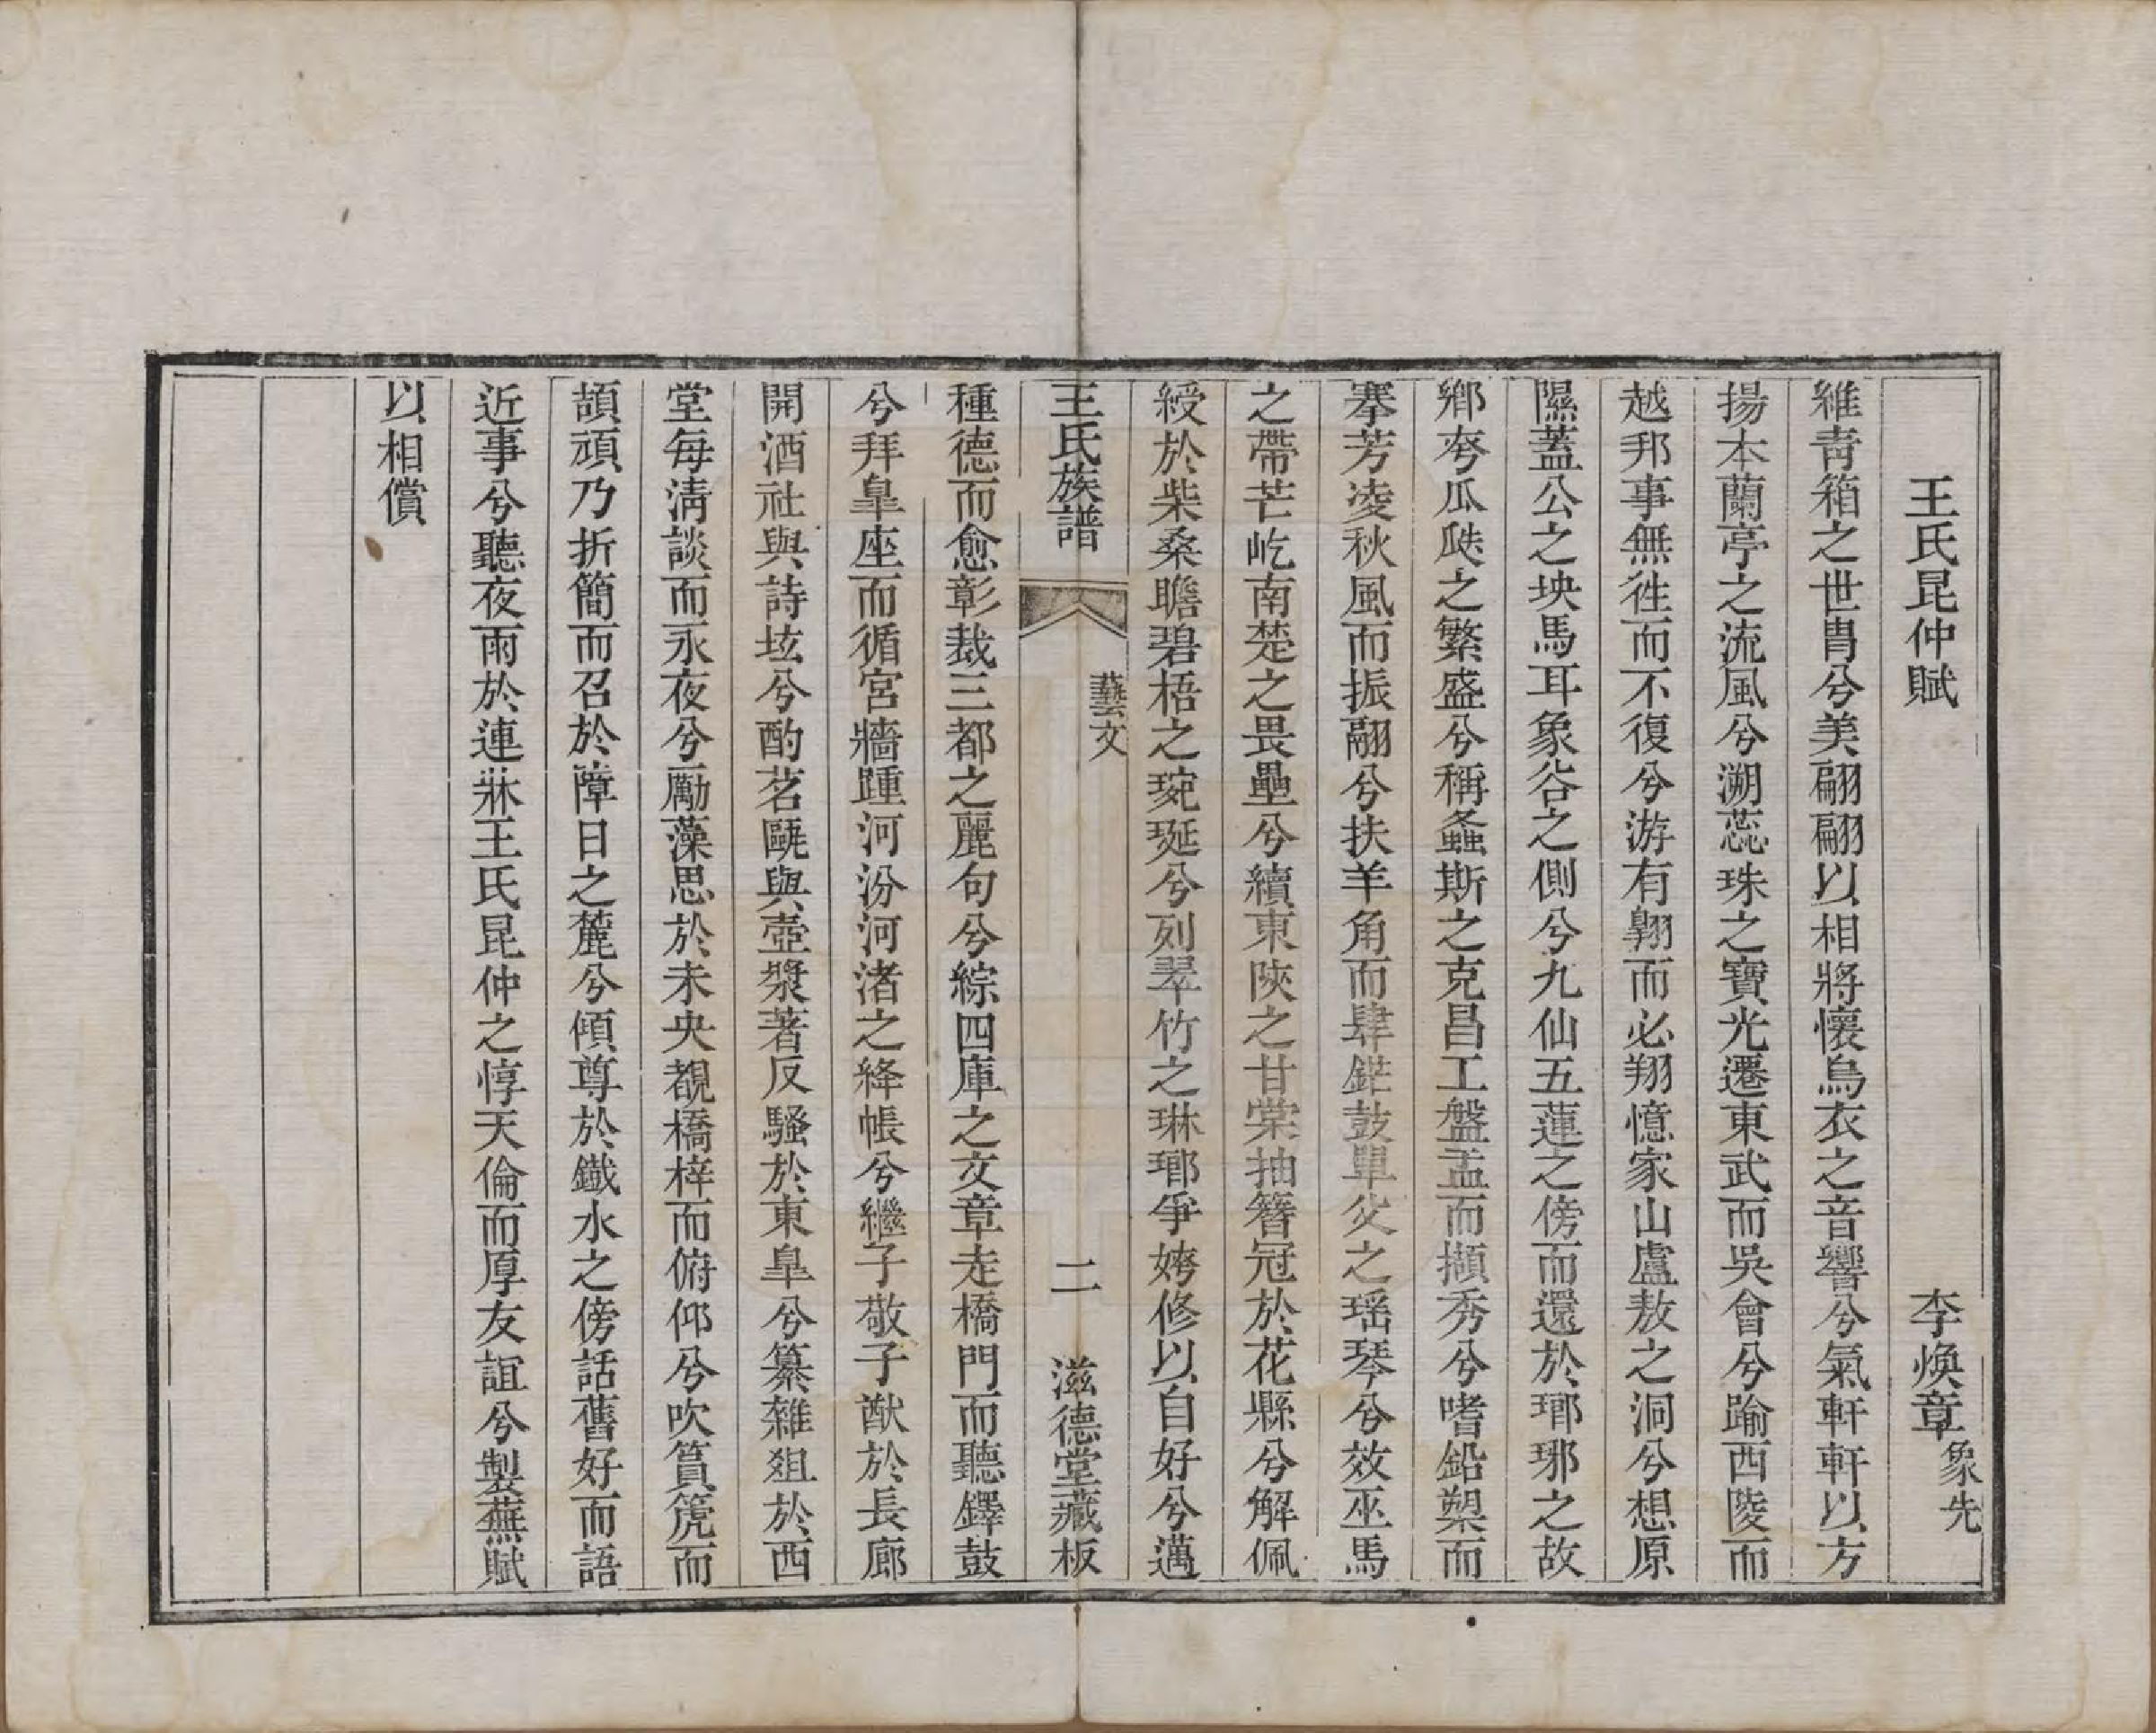 王氏昆仲賦　李煥章象先
維靑箱之世胄兮美翩翩以相將懷烏衣之音響兮氣軒軒以方
揚本蘭亭之流風兮溯蕊珠之寶光遷東武而吳會兮踰西陵而
越邦事無徃而不復兮游有翺而必翔憶家山盧敖之洞兮想原
隰蓋公之坱馬耳象谷之側兮九仙五蓮之傍而還於瑘琊之故
鄉夸瓜瓞之繁盛兮稱螽斯之克昌工盤盂而擷秀兮嗜鉛槧而
搴芳凌秋風而振翮兮扶羊角而肆鋩鼓單父之瑶琴兮效巫馬
之帶芒屹南楚之畏壘兮續東陝之甘棠抽簪冠於花縣兮解佩
綬於柴桑瞻碧梧之琬琰兮列翠竹之琳瑯爭姱修以自好兮邁
王氏族譜　藝文　二　滋德堂藏板
種德而愈彰裁三都之麗句兮綜四庫之文章走橋門而聽鐸鼓
兮拜臯座而循宮牆踵河汾河渚之絳帳兮繼子敬子猷於長廊
開酒社與詩坫兮酌茗甌與壺漿著反騷於東臯兮纂雜俎於西
堂每淸談而永夜兮勵藻思於未央覩橋梓而俯仰兮吹篔箎而
頡頏乃折簡而召於障日之麓兮傾尊於鐵水之傍話舊好而語
近事兮聽夜雨於連牀王氏昆仲之惇天倫而厚友誼兮製蕪賦
以相償